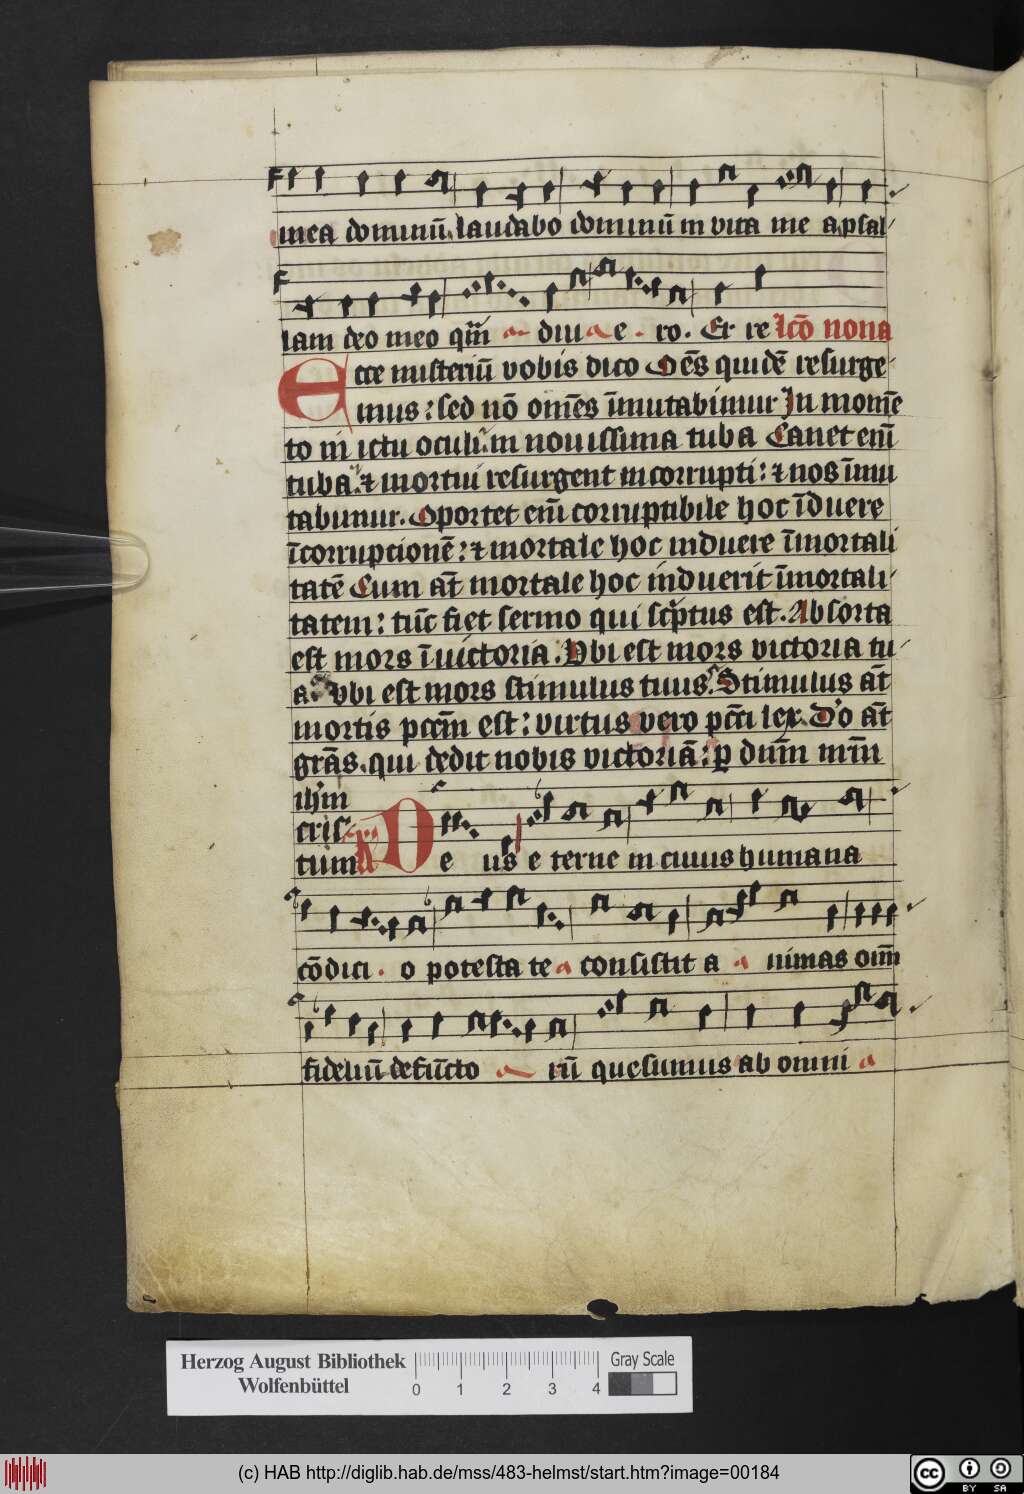 mea dominū. laudabo dominū in vita mea psal
lam deo meo qm̄ diu e ro. Et re lc̄o nona
Ecce misteriū vobis dico Oēs quidē resurge
mus: sed nō om̄es īmutabimur In momē
to in ictu oculi. in nouissima tuba Canet em̄
tuba. ⁊ mortui resurgent incorrupti: ⁊ nos īmu
tabimur. Oportet em̄ corruptibile hoc īduere
īcorrupcionē: ⁊ mortale hoc induere īmortali
tatē Cum at̄ mortale hoc induerit īmortali
tatem: tūc fiet sermo qui sc̄ptus est. Absorta
est mors ī uictoria. Vbi est mors victoria tu
a. vbi est mors stimulus tuus. Stimulus at̄
mortis pccm̄ est: virtus vero pcc̄i lex. D'o at̄
grās. qui dedit nobis victoriā: ꝑ dnm̄ nr̄m
ihm̄
cris
tum De us e terne in cuius humana
cōdici o potesta te consistit a nimas oim̄
fideliū defūcto rū quesumus ab omni
Herzog August Bibliothek
Wolfenbüttel
0 1 2 3 4
Gray Scale
(c) HAB http://diglib.hab.de/mss/483-helmst/start.htm?image=00184
cc BY SA